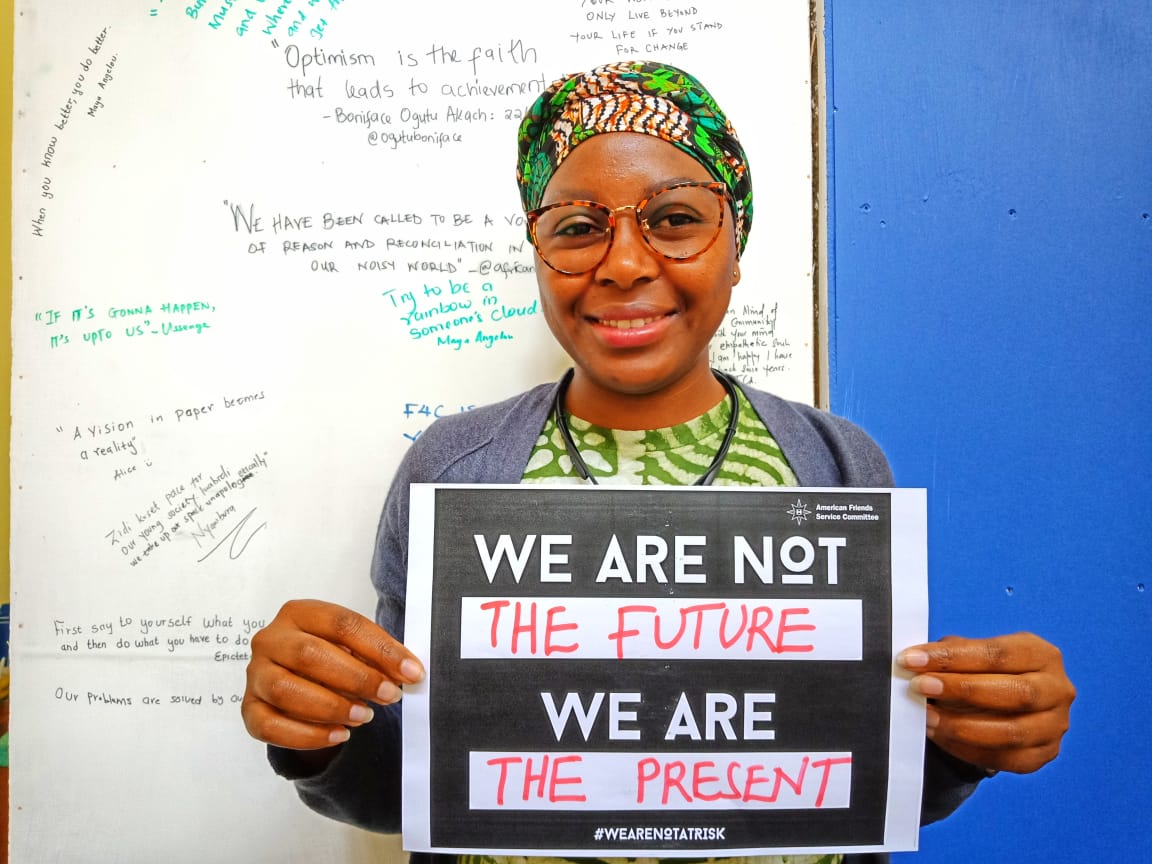 When you know better, you do better.
Maya Angelou.
and
ONLY LIVE BEYOND
YOUR LIFE IF YOU STAND
FOR CHANGE
"Optimism is the faith
that leads to achievement
- Boniface Ogutu Akach: 22
@ogutuboniface
"WE HAVE BEEN CALLED TO BE A
OF REASON AND RECONCILIATION IN
OUR NOISY WORLD" - @african
Try to be a
rainbow in
someone's cloud
Maya Angelou
"IF IT'S GONNA HAPPEN,
IT'S UPTO US" - Ussenge
Mind of
Community
your mind
empathetic
I am happy I have
back
F4C is
"A vision in paper becomes
a reality"
Alice
Zidi kuset pace for
our young society
we
speak
Nyambura
First say to yourself what you
and then do what you have to do
Our problems are solved by
American Friends
Service Committee
WE ARE NOT
THE FUTURE
WE ARE
THE PRESENT
#WEARENOTATRISK